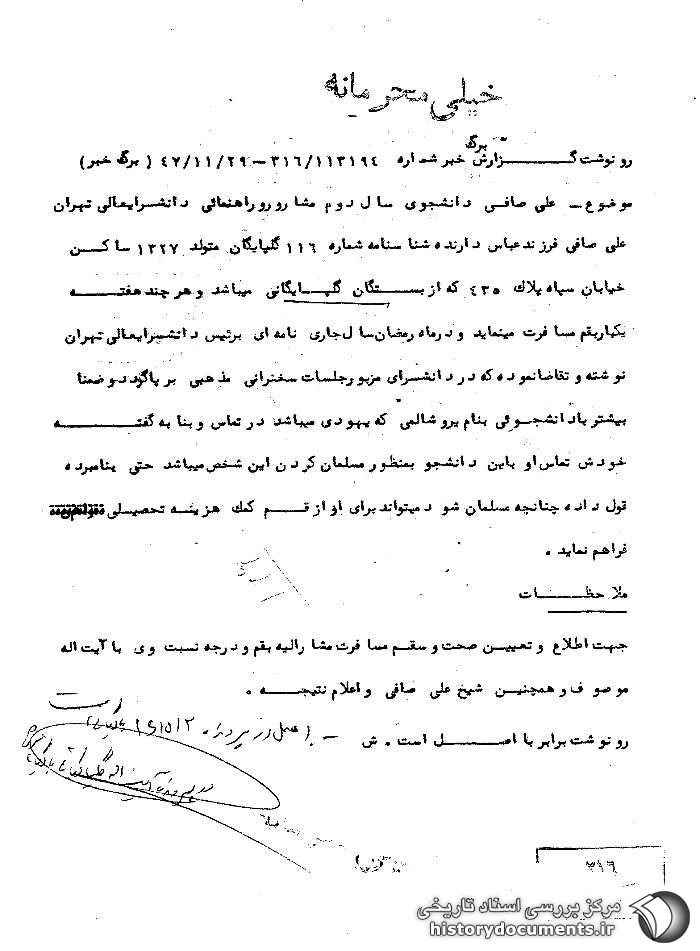 خیلی محرمانه
برگ
رونوشت گزارش خبر شماره ۳۱۶/۱۱۳۱۹۴ – ۴۷/۱۱/۲۹ ( برگ خبر )
موضوع – علی صافی دانشجوی سال دوم مشاور و راهنمائی دانشسرایعالی تهران
علی صافی فرزند عباس دارنده شناسنامه شماره ۱۱۶ گلپایگان متولد ۱۳۲۷ ساکن
خیابان سپاه پلاک ۴۳۵ که از بستگان گلپایگانی میباشد و هر چند هفته
یکبار بقم مسافرت مینماید و در ماه رمضان سال جاری نامه ای برئیس دانشسرایعالی تهران
نوشته و تقاضا نموده که در دانشسرای مزبور جلسات سخنرانی مذهبی بر پا گردد و ضمنا
بیشتر با دانشجوئی بنام یروشالمی که یهودی میباشد در تماس و بنا به گفته
خودش تماس او باین دانشجو بمنظور مسلمان کردن این شخص میباشد حتی نامبرده
قول داده چنانچه مسلمان شود میتواند برای او از قم کمک هزینه تحصیلی
فراهم نماید .
ملاحظات
جهت اطلاع و تعیین صحت و سقم مسافرت مشارالیه بقم و درجه نسبت وی با آیت اله
موصوف و همچنین شیخ علی صافی و اعلام نتیجه .
رونوشت برابر با اصل است . ش – اصل در پرونده
۳۱۶
مرکز بررسی اسناد تاریخی
historydocuments.ir